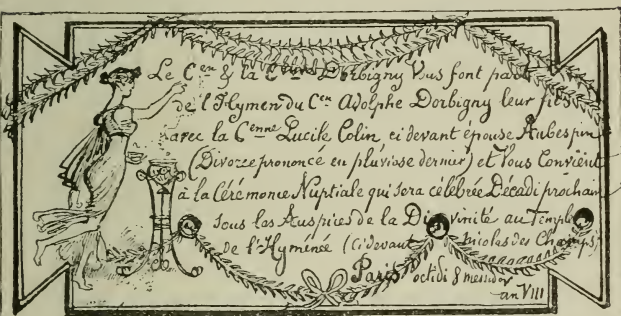 Le Cen & la Cenne Dorbigny Vous font part
de l'Hymen du Cen Adolphe Dorbigny leur fils
avec la Cenne Lucile Colin ci devant épouse Aubespin
(Divorce prononcé en pluviose dernier) et Vous Convient
à la Cérémonie Nuptiale qui sera célébrée Décadi prochain
sous les Auspices de la Divinité au Temple
de l'Hyménée (Ci devant Nicolas des Champs)
Paris octidi 8 messidor
an VIII